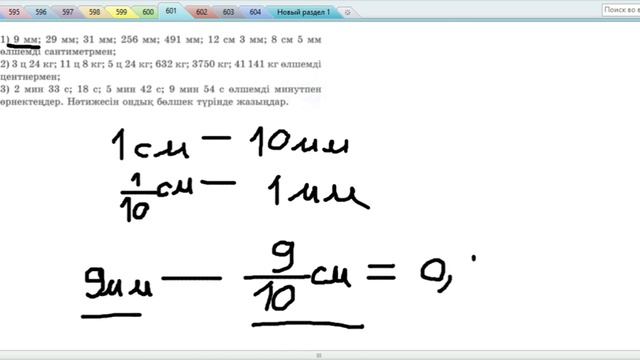 595 596 597 598 599 600 601 602 603 604 Новый раздел 1
Поиск во в
1) 9 мм; 29 мм; 31 мм; 256 мм; 491 мм; 12 см 3 мм; 8 см 5 мм
өлшемді сантиметрмен;
2) 3 ц 24 кг; 11 ц 8 кг; 5 ц 24 кг; 632 кг; 3750 кг; 41 141 кг өлшемді
центнермен;
3) 2 мин 33 с; 18 с; 5 мин 42 с; 9 мин 54 с өлшемді минутпен
өрнектеңдер. Нәтижесін ондық бөлшек түрінде жазыңдар.
1 см — 10 мм
1/10 см — 1 мм
9 мм — 9/10 см = 0,